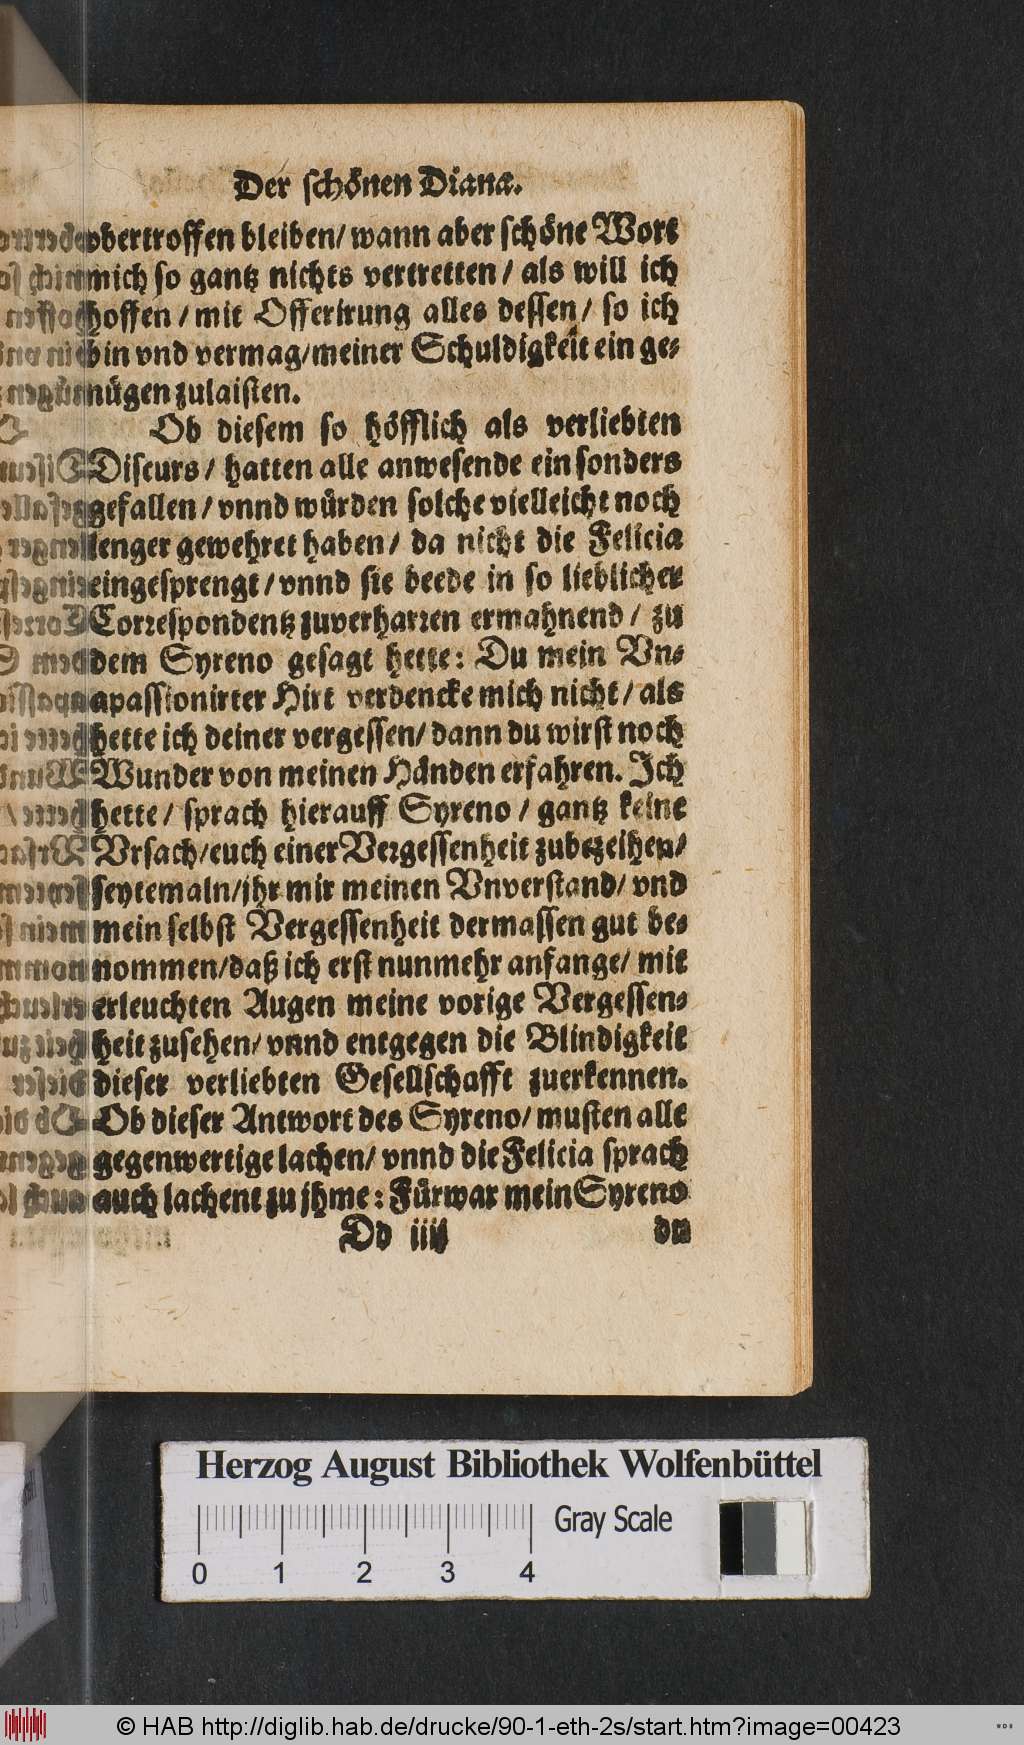 Der schönen Diana.
obertroffen bleiben/ wann aber schöne Wort
mich so gantz nichts vertretten / als will ich
hoffen / mit Offerirung alles dessen / so ich
bin vnd vermag/meiner Schuldigkeit ein ge-
nügen zulaisten.
Ob diesem so höfflich als verliebten
Discurs / hatten alle anwesende ein sonders
gefallen / vnnd würden solche vielleicht noch
lenger gewehret haben / da nicht die Felicia
eingesprengt / vnnd sie beede in so lieblicher
Correspondentz zuverharren ermahnend / zu
dem Syreno gesagt hette: Du mein Vn-
apassionirter Hirt verdencke mich nicht / als
hette ich deiner vergessen/ dann du wirst noch
Wunder von meinen Händen erfahren. Ich
hette / sprach hierauff Syreno / gantz keine
Vrsach/euch einer Vergessenheit zubezeihen/
seytemaln/jhr mir meinen Vnverstand/ vnd
mein selbst Vergessenheit dermassen gut be-
nommen/daß ich erst nunmehr anfange/ mit
erleuchten Augen meine vorige Vergessen-
heit zusehen/ vnnd entgegen die Blindigkeit
dieser verliebten Gesellschafft zuerkennen.
Ob dieser Antwort des Syreno/ musten alle
gegenwertige lachen/ vnnd die Felicia sprach
auch lachent zu jhme: Fürwar mein Syreno
Dd iiij
du
Herzog August Bibliothek Wolfenbüttel
Gray Scale
0 1 2 3 4
© HAB http://diglib.hab.de/drucke/90-1-eth-2s/start.htm?image=00423